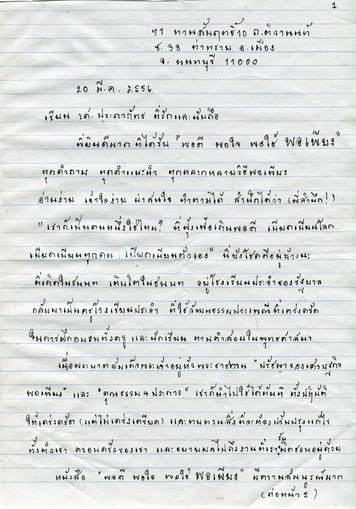 1
71 ถ.ติวานนท์
ซ. 38 ท่าทราย อ.เมือง
จ. นนทบุรี 11000
20 มี.ค. 2556
เรียน รศ. ที่รักและนับถือ
พี่ยินดีมากที่ได้รับ "พอดี พอใจ พอใช้ พอเพียง"
ทุกคำถาม ทุกคำแนะนำ ทุกหลากหลายวิธีพอเพียง
อ่านง่าย เข้าใจง่าย น่าสนใจ ทำตามได้ สำนึกได้ว่า (พี่สำนึก!)
"เราก็เป็นคนหนึ่งใช่ไหม? ที่ฟุ้งเฟ้อเกินพอดี เบียดเบียนโลก
เบียดเบียนทุกคน แม้เบียดเบียนตัวเอง" นี่ยังโชคดีอยู่บ้างนะ
ที่เกิดในชนบท เติบโตในชนบท อยู่โรงเรียนประจำของรัฐบาล
กลับมาเป็นครูโรงเรียนประจำ ที่ใช้วัฒนธรรมประเพณีที่เคร่งครัด
ในการฝึกอบรมทั้งครู และนักเรียน ตามคำสอนในพุทธศาสนา
เมื่อพระบาทสมเด็จพระเจ้าอยู่หัวพระราชทาน "ปรัชญาของเศรษฐกิจ
พอเพียง" และ "คุณธรรม ๔ ประการ" เราก็นำไปใช้ได้ทันที ทั้งปฏิบัติ
ให้เคร่งครัด (แต่ไม่เคร่งเครียด) และทบทวนสิ่งที่จะต้องปรับปรุงแก้ไข
ทั้งตัวเรา ครอบครัวของเรา และขยายผลไปถึงงานที่เรารับผิดชอบอยู่ด้วย
หนังสือ "พอดี พอใจ พอใช้ พอเพียง" มีความสมบูรณ์มาก
(ต่อหน้า 2)